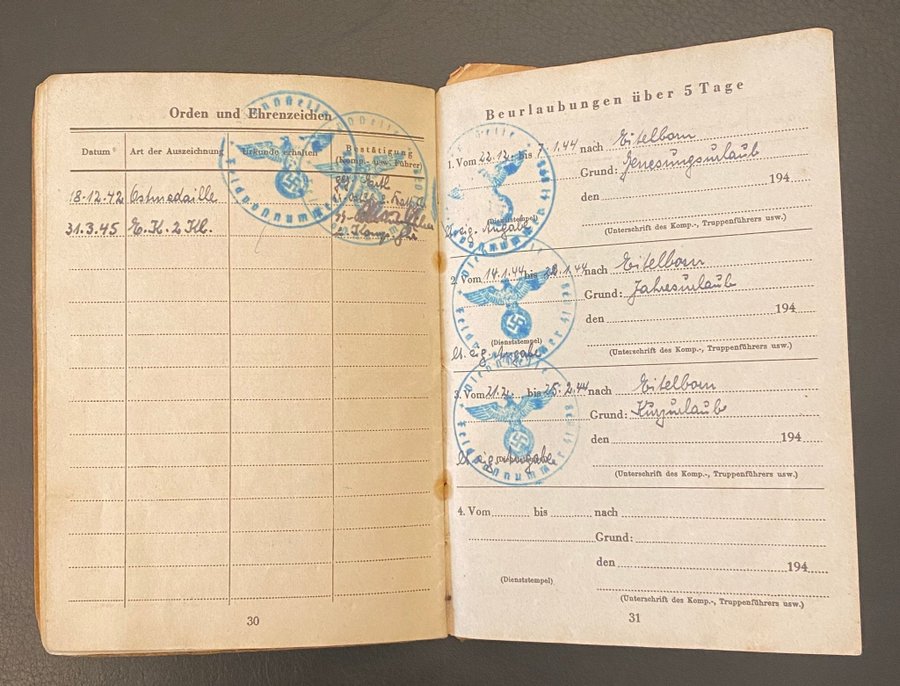 Orden und Ehrenzeichen
Datum Art der Auszeichnung Urkunde erhalten Bestätigung (Komp.- usw. Führer)
18.12.42 Ostmedaille
31.3.45 E.K. 2 Kl.
30
Beurlaubungen über 5 Tage
1. Vom 22.12. bis 1.44 nach Eitelborn
Grund: Genesungsurlaub
den 194
(Dienststempel)
lt. eig. Angabe
(Unterschrift des Komp.-, Truppenführers usw.)
2. Vom 14.1.44 bis 1.44 nach Eitelborn
Grund: Jahresurlaub
den 194
(Dienststempel)
lt. eig. Angabe
(Unterschrift des Komp.-, Truppenführers usw.)
3. Vom 21.2. bis 25.2.44 nach Eitelborn
Grund: Kurzurlaub
den 194
lt. eig. Angabe
(Unterschrift des Komp.-, Truppenführers usw.)
4. Vom bis nach
Grund:
den 194
(Dienststempel)
(Unterschrift des Komp.-, Truppenführers usw.)
31